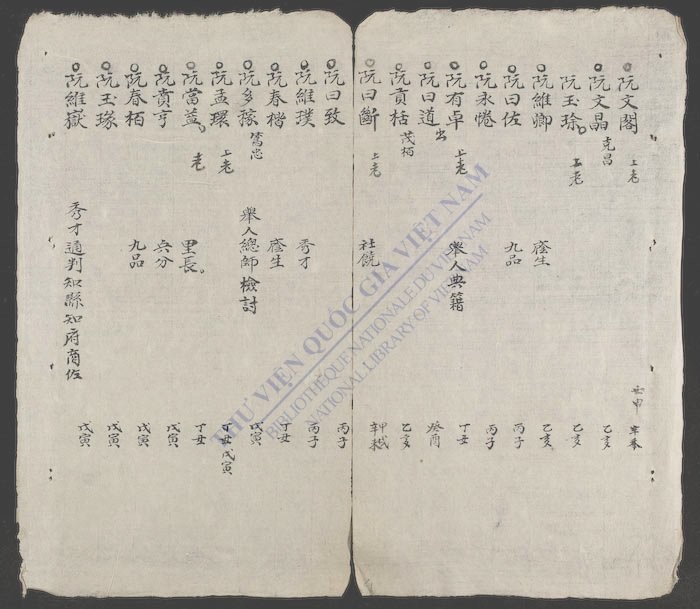 阮文閣 上老 壬申
阮文晶 克昌 乙亥
阮玉瑔 五老 乙亥
阮維卿 廕生 乙亥
阮曰佐 九品 丙子
阮永惓 丙子
阮有卓 上老 舉人典籍 丁丑
阮曰道 出 癸酉
阮貢枯 茂栢 乙亥
阮曰斷 上老 社饒 甲戌 辛未
阮曰致 丙子
阮維璞 秀才 丙子
阮春楷 廕生 丁丑
阮多稼 篤忠 舉人總師檢討 戊寅
阮孟環 上老 丁丑 戊寅
阮當蓋 老 里長 丁丑
阮賁亨 兵分 戊寅
阮春栢 九品 戊寅
阮玉瑑 戊寅
阮維嶽 秀才通判知縣知府商佐 戊寅
THƯ VIỆN QUỐC GIA VIỆT NAM
BIBLIOTHÈQUE NATIONALE DU VIETNAM
NATIONAL LIBRARY OF VIETNAM